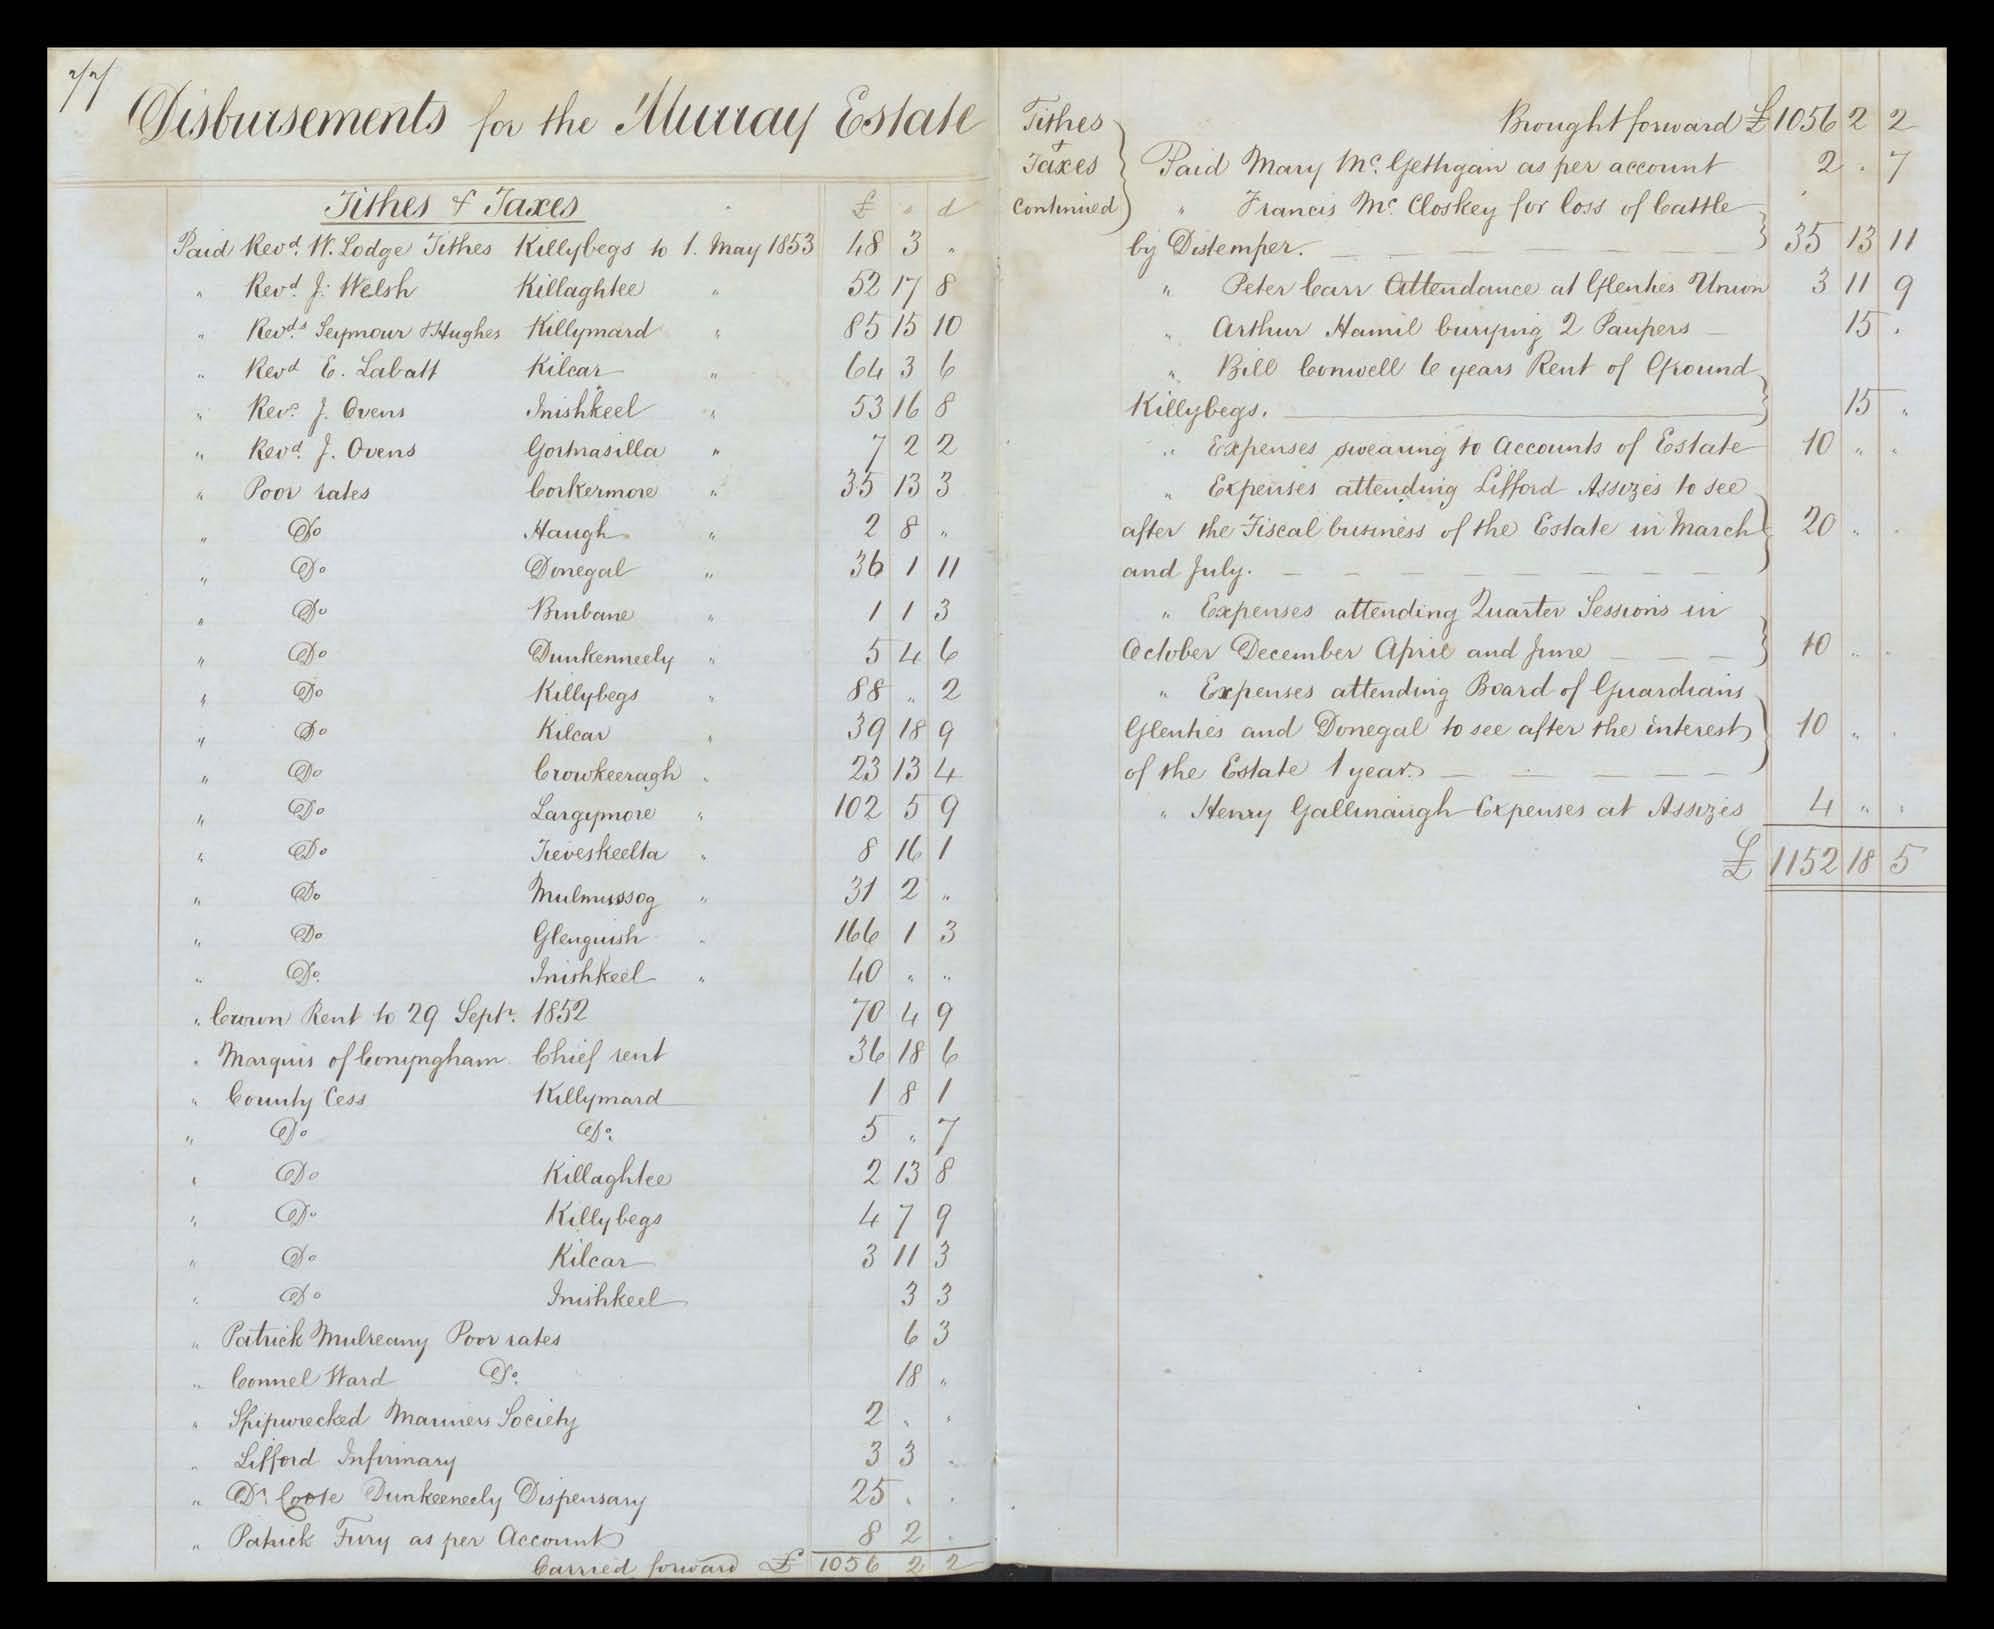 77
Disbursements for the Murray Estate
Tithes & Taxes £ s d
Paid Revd. W. Lodge Tithes Killybegs to 1. May 1853 48 3 "
" Revd. J. Welsh Killaghtee " 52 17 8
" Revds. Seymour & Hughes Killymard " 85 15 10
" Revd E. Labatt Kilcar " 64 3 6
" Revd. J. Ovens Inishkeel " 53 16 8
" Revd. J. Ovens Gortnasilla " 7 2 2
" Poor rates Corkermore " 35 13 3
" Do Haugh " 2 8 "
" Do Donegal " 36 1 11
" Do Binbane " 1 1 3
" Do Dunkenneely " 5 4 6
" Do Killybegs " 88 " 2
" Do Kilcar " 39 18 9
" Do Crowkeeragh " 23 13 4
" Do Largymore " 102 5 9
" Do Tieveskeelta " 8 16 1
" Do Mulmussog " 31 2 "
" Do Glenguish " 166 1 3
" Do. Inishkeel " 40 " "
" Crown Rent to 29 Septr. 1852 70 4 9
" Marquis of Conyngham Chief rent 36 18 6
" County Cess Killymard 1 8 1
" Do Do. 5 " 7
" Do Killaghtee 2 13 8
" Do Killybegs 4 7 9
" Do Kilcar 3 11 3
" Do Inishkeel 3 3
" Patrick Mulreany Poor rates 6 3
" Connel Ward Do. 18 "
" Shipwrecked Mariners Society 2 " "
" Lifford Infirmary 3 3 "
" Dr Coote Dunkeneely Dispensary 25 " "
" Patrick Fury as per Account 8 2 "
Carried forward £ 1056 2 2
Tithes & Taxes continued
Brought forward £ 1056 2 2
Paid Mary Mc. Gethgan as per account 2 " 7
" Francis Mc. Closkey for loss of Cattle
by Distemper. 35 13 11
" Peter Carr Attendance at Glenties Union 3 11 9
" Arthur Hamil burying 2 Paupers 15 "
" Bill Conwell 6 years Rent of Ground
Killybegs. 15 "
" Expenses swearing to Accounts of Estate 10 " "
" Expenses attending Lifford Assizes to see
after the Fiscal business of the Estate in March 20 " "
and July.
" Expenses attending Quarter Sessions in
October December April and June 10 " "
" Expenses attending Board of Guardians
Glenties and Donegal to see after the interest 10 " "
of the Estate 1 year.
" Henry Gallinaugh Expenses at Assizes 4 " "
£ 1152 18 5